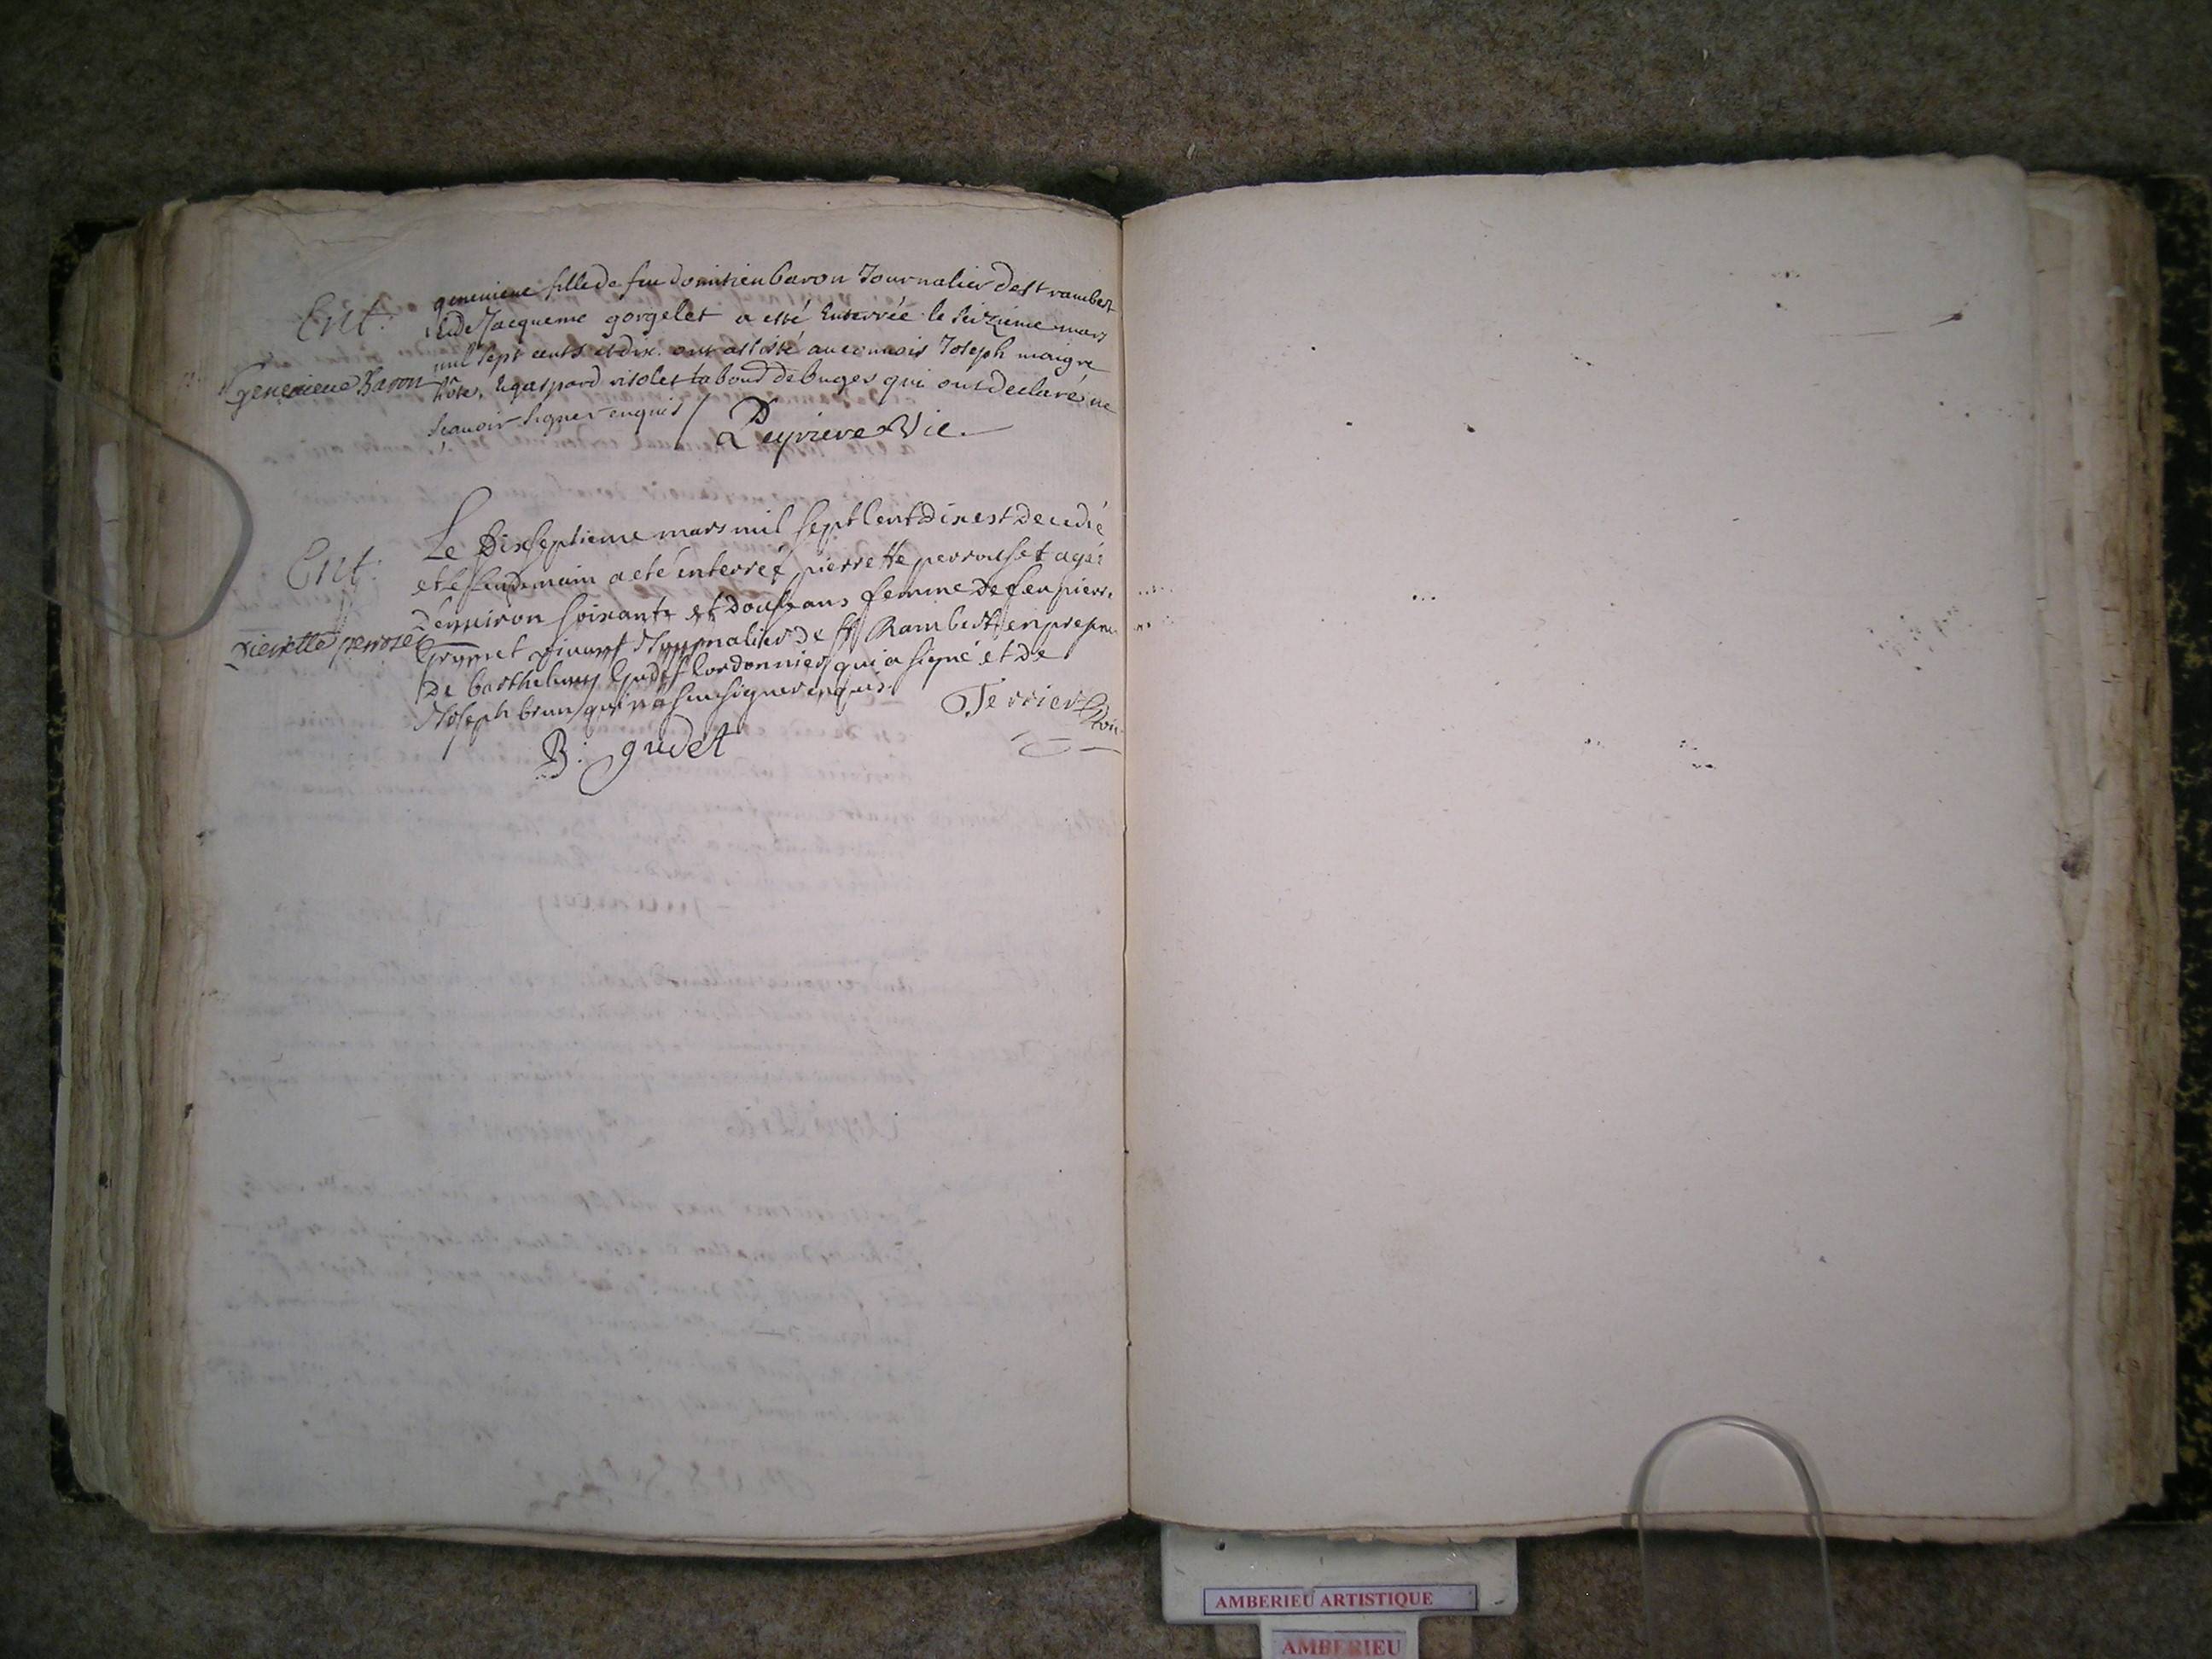 Ent.
genevieve fille de feu domitien baron Journalier de st rambert
et de Jacqueme gorgelet a esté Enterrée le seizieme mars
mil sept cents et dix. ont assisté au convois Joseph maigre
genevieve Baron
hote, et gaspard violet tabour de buges qui ont declaré ne
scavoir signer enquis /
Peyrieve Vic.
Le Dixseptieme mars mil sept Cent dix est decedé
Ent:
et le lendemain a eté enterreé pierrette perrouset ageé
d'environ soixante et douse ans femme de feu pierre
pierrette perroset
vivant Journalier de st Rambert en presence
De barthelemy gudet Cordonnier qui a signé et de
Joseph brun qui n'a sceu signer enquis
Terrier
B: gudet
AMBERIEU ARTISTIQUE
AMBERIEU